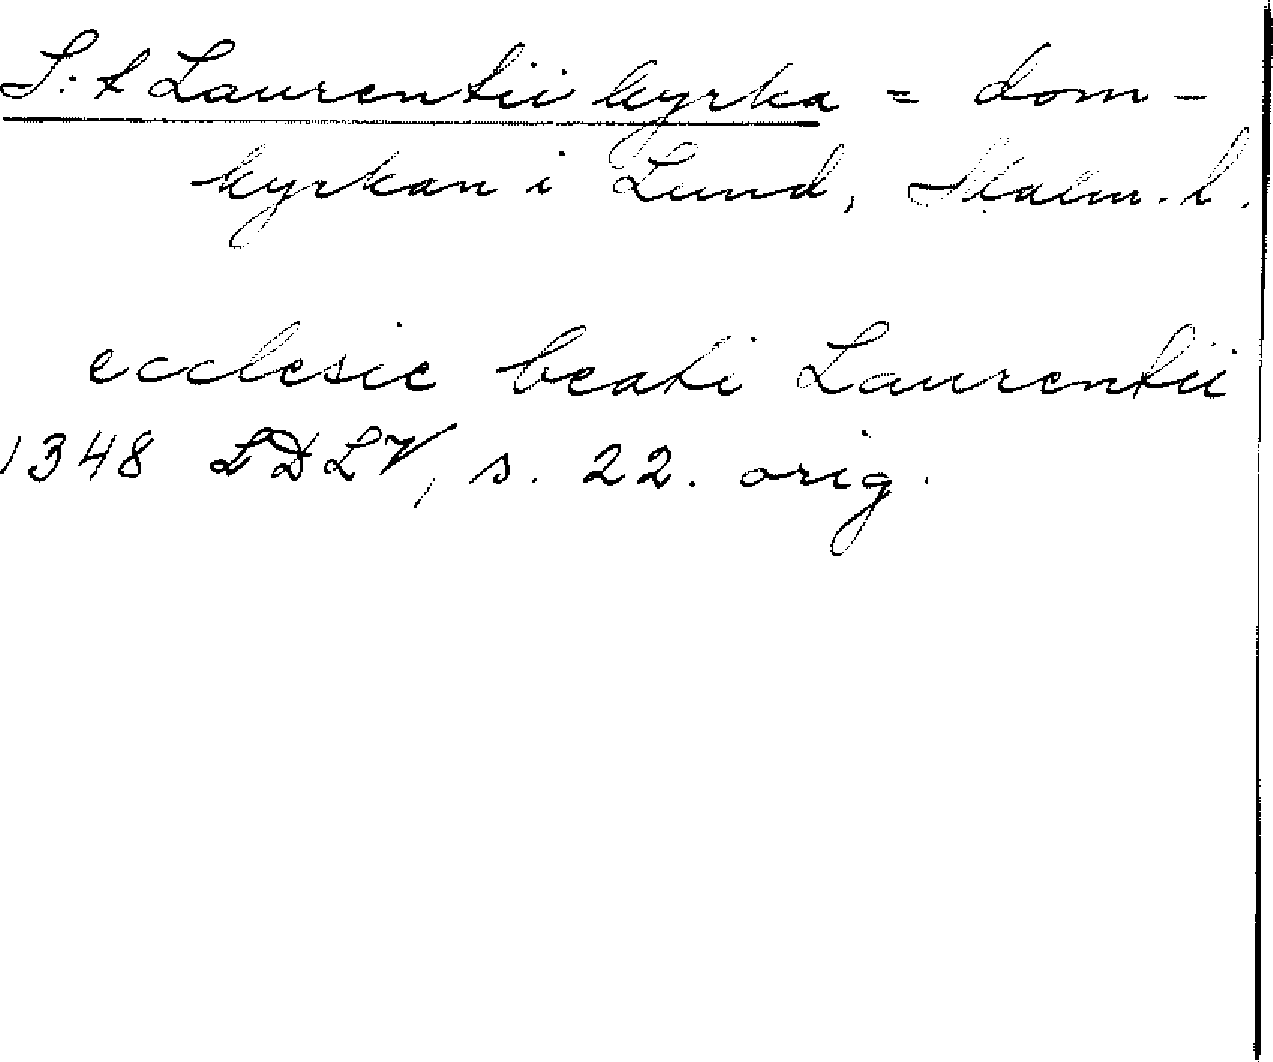 S:t Laurentii kyrka = dom-
kyrkan i Lund, Malm. l.
ecclesie beati Laurentii
1348 LDLV, s. 22. orig.